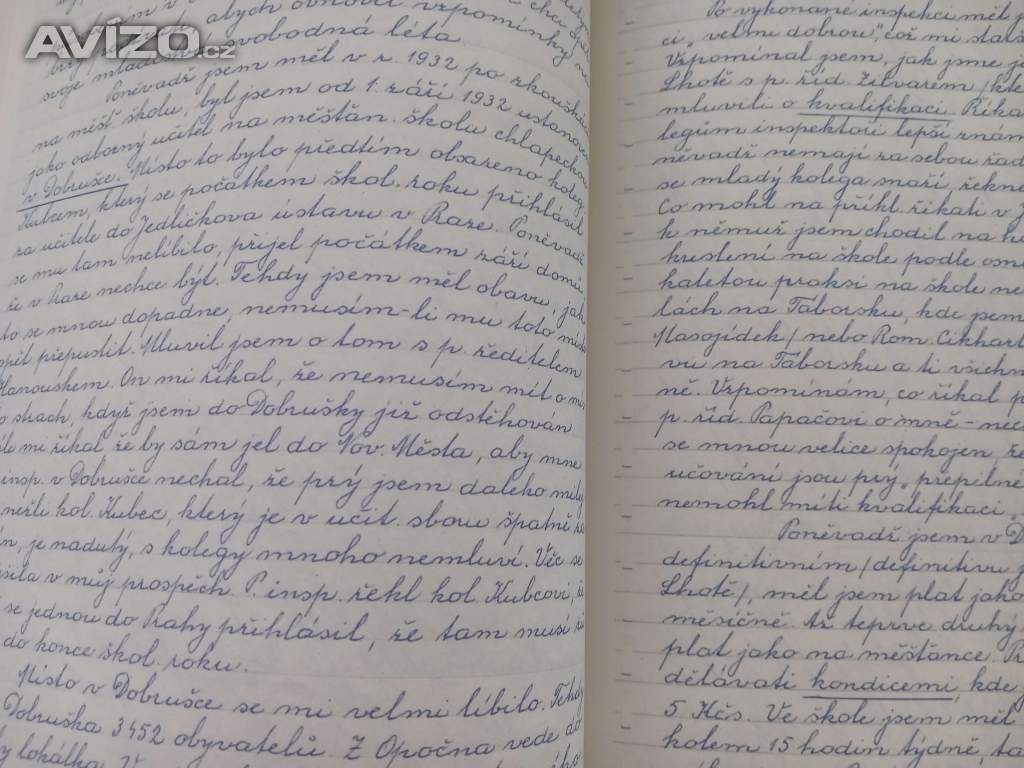 AVÍZO.cz
v
chci
abych obnovil vzpomínky na
svoje svobodná léta.
Poněvadž jsem měl v r. 1932 po zkoušku
na měšť. školu, byl jsem od 1. září 1932 ustanoven
jako odborný učitel na měšťan. školu chlapeckou
v Dobrušce. Místo to bylo předtím obsazeno kolegou
Kubcem, který se počátkem škol. roku přihlásil
za učitele do Jedličkova ústavu v Praze. Poněvadž
se mu tam nelíbilo, přijel počátkem září domů
že v Praze nechce býti. Tehdy jsem měl obavu, jak
to se mnou dopadne, nemusím-li mu toto místo
opět přepustit. Mluvil jsem o tom s p. ředitelem
Hanouskem. On mi říkal, že nemusím mít o
strach, když jsem do Dobrušky již odstěhován
mi říkal že by sám jel do Nov. Města, aby mne
insp. v Dobrušce nechal, že prý jsem daleko milejší
nežli kol. Kubec, který je v učit. sboru špatně
je nadutý, s kolegy mnoho nemluví. Věc se
v můj prospěch. P. insp. řekl kol. Kubcovi, že
se jednou do Prahy přihlásil, že tam musí
do konce škol. roku.
Místo v Dobrušce se mi velmi líbilo. Tehdy
Dobruška 3452 obyvatelů. Z Opočna vede do
lokálka. V
Po vykonané inspekci měl
ci „velmi dobrou", což mi
Vzpomínal jsem, jak jsme
Lhotě s p. říd. Žilvarem /
mluvili o kvalifikaci. Říka
legům inspektoři lepší znám
něvadž nemají za sebou řad
se mladý kolega snaží, řekne
Co mohl na příkl. říkati v
k němuž jsem chodil na
kreslení na škole podle osno
haletou praksi na škole ne
lách na Táborsku, kde jsem
Masojídek / nebo Rom. Cikhart
vu na Táborsku a ti všichn
ně. Vzpomínám, co říkal p
p. říd. Papačovi o mně - nec
se mnou velice spokojen, že
učování jsou prý „přepilné
nemohl míti kvalifikaci „
Poněvadž jsem v D
definitivním / definitivu
Lhotě /, měl jsem plat jako
měsíčně. Až teprve druhý
plat jako na měšťance. P
dělávati kondicemi, kde
5 Kčs. Ve škole jsem měl
kolem 15 hodin týdně, ta